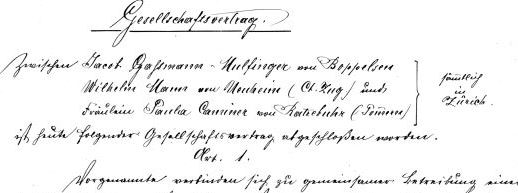 Gesellschaftsvertrag.
Zwischen Jacob Gaßmann-Hulfinger von Boppelsen
Wilhelm Mann von Neuheim (Ct. Zug) und
Fräulein Paula Caminer von Ratiebuhr (Pommern)
sämtlich
in
Zürich.
ist heute folgender Gesellschaftsvertrag abgeschloßen worden.
Art. 1.
Vorgenannte verbinden sich zu gemeinsamer Betreibung eines